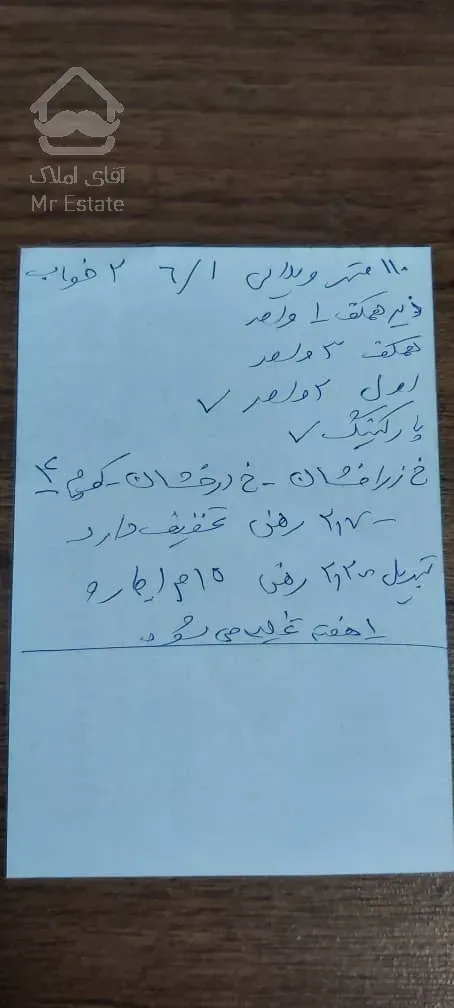 آقای املاک
Mr Estate
۱۱۰ متر ویلایی ۶/۱ ۲ خواب
زیر همکف ۱ واحد
همکف ۳ واحد
اول ۲ واحد ✓
پارکینگ ✓
خ زرافشان - خ درخشان - کوچه ۴
۲,۷۰۰ رهن تخفیف دارد
تبدیل ۲,۲۰۰ رهن ۱۵ م اجاره
۱ هفته تخلیه می شود.